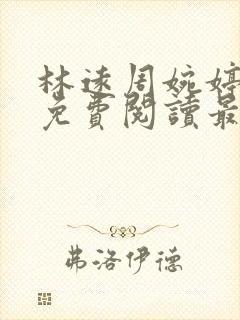 林遠周婉婷
免費閱讀最
弗洛伊德